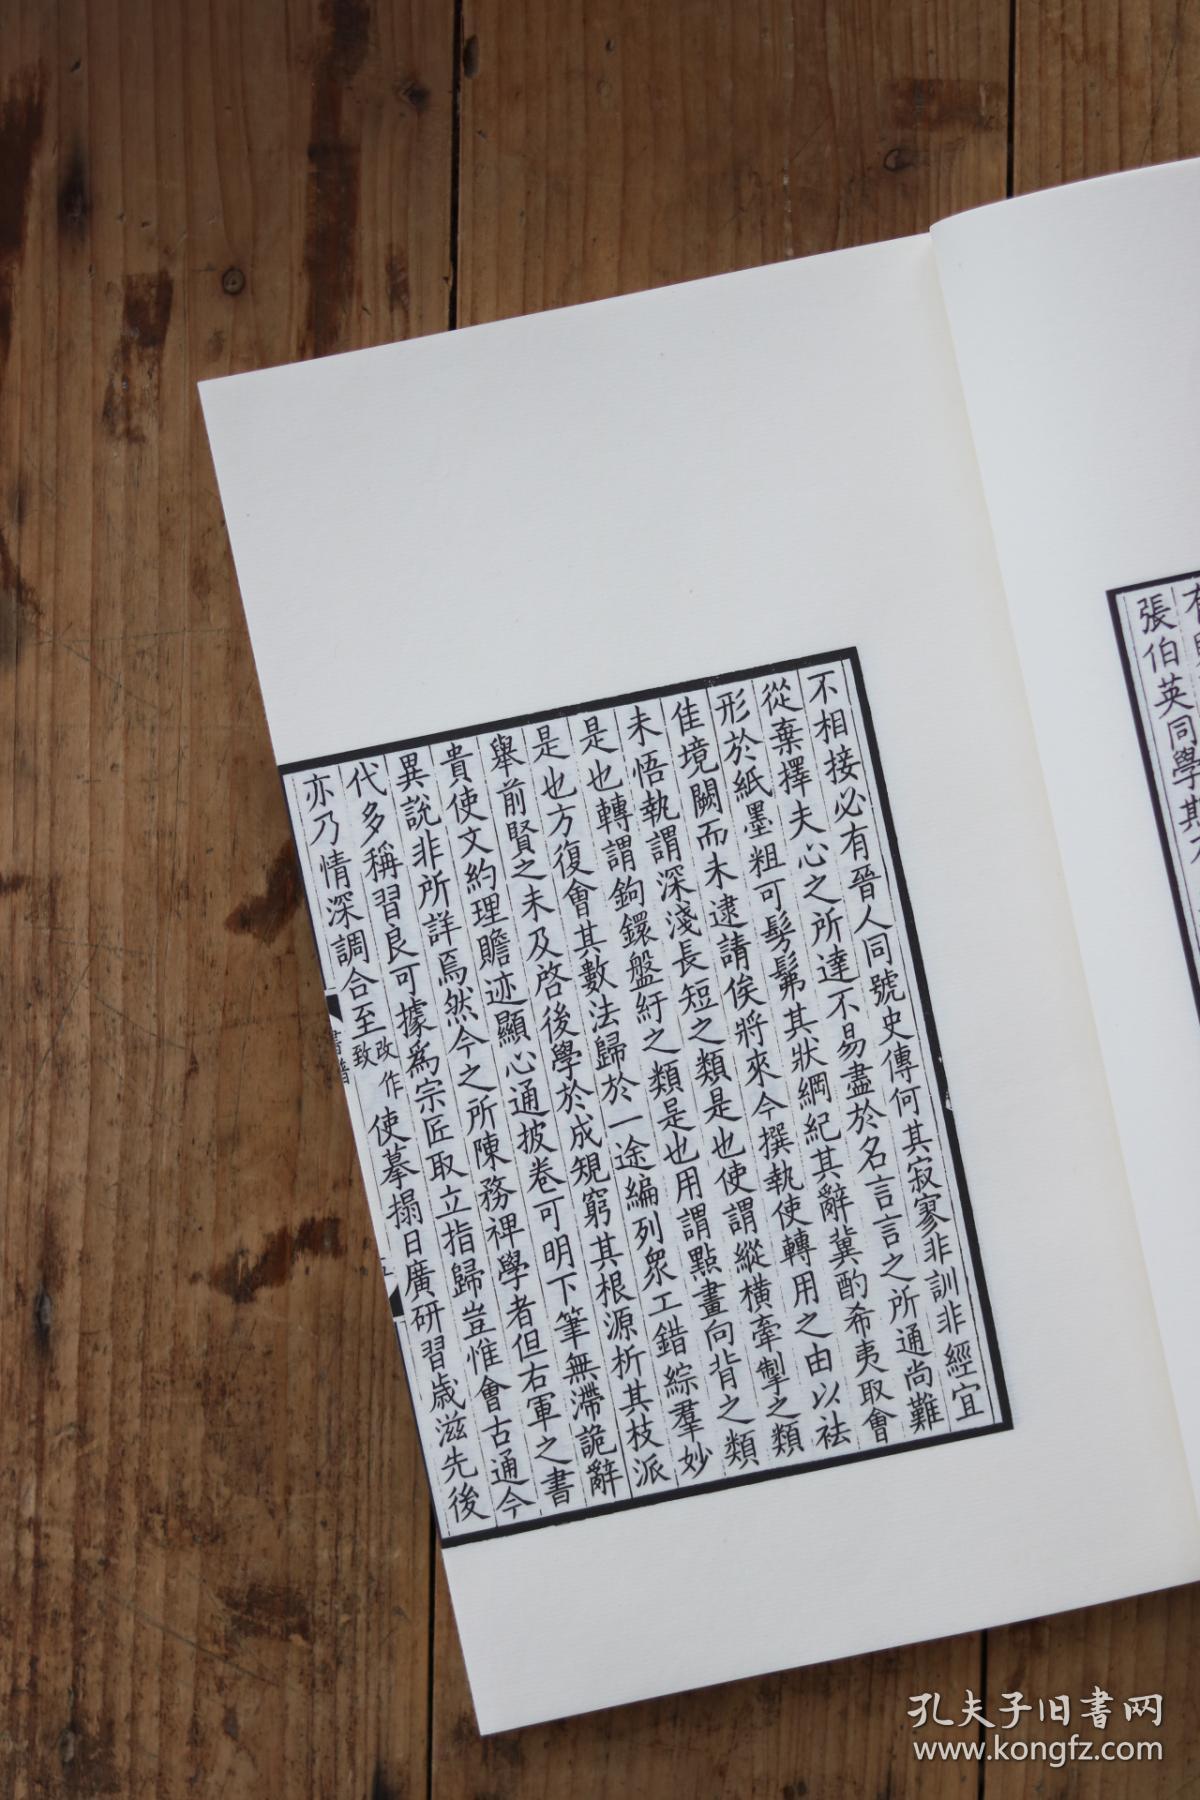 張伯英同學斯
不相接必有晉人同號史傳何其寂寥非訓非經宜
從棄擇夫心之所達不易盡於名言言之所通尚難
形於紙墨粗可髣髴其狀綱紀其辭冀酌希夷取會
佳境闕而未逮請俟將來今撰執使轉用之由以祛
未悟執謂深淺長短之類是也使謂縱橫牽掣之類
是也轉謂鉤鐶盤紆之類是也用謂點畫向背之類
是也方復會其數法歸於一途編列衆工錯綜羣妙
舉前賢之未及啓後學於成規窮其根源析其枝派
貴使文約理贍迹顯心通披卷可明下筆無滯詭辭
異說非所詳焉然今之所陳務裨學者但右軍之書
代多稱習良可據爲宗匠取立指歸豈惟會古通今
亦乃情深調合至改作致使摹搨日廣研習歲滋先後
書譜
孔夫子旧书网
www.kongfz.com